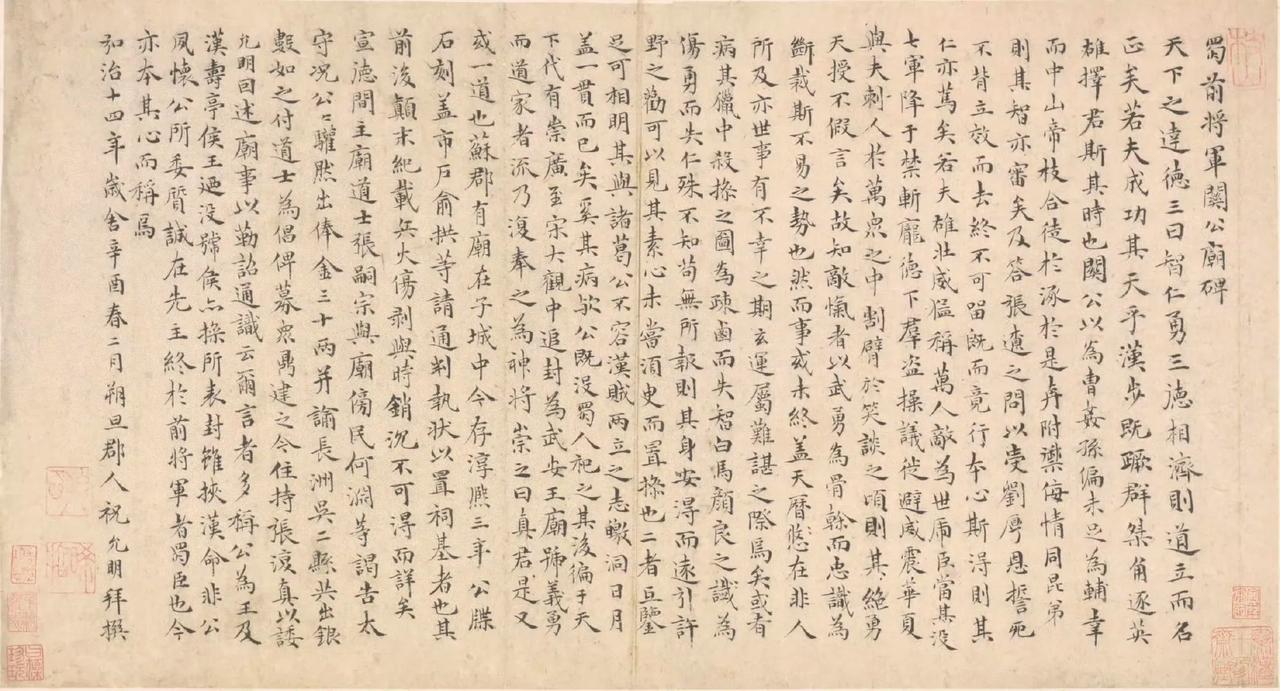 蜀前将軍關公廟碑
天下之達德三曰智仁勇三德相濟則道立而名
正矣若夫成功其天乎漢步既蹶群桀角逐英
雄擇君斯其時也關公以為曹姦孫偏未足為輔幸
而中山帝枝合徒於涿於是奔附禦侮情同昆弟
則其智亦審矣及答張遼之問以受劉厚恩誓死
不背立效而去終不可留既而竟行本心斯得則其
仁亦篤矣若夫雄壯威猛稱萬人敵為世虎臣當其沒
七軍降于禁斬龐德下羣盜操議徙避威震華夏
與夫刺人於萬衆之中割臂於笑談之頃則其絶勇
天授不假言矣故知敵愾者以武勇為骨榦而忠識為
斷裁斯不易之勢也然而事或未終盖天曆悠在非人
所及亦世事有不幸之期玄運屬難諶之際焉矣或者
病其獵中殺操之圖為疎鹵而失智白馬顔良之識為
傷勇而失仁殊不知苟無所報則其身安得而遠引許
野之勸可以見其素心未嘗須臾而置操也二者互鑒
足可相明其與諸葛公不容漢賊兩立之志皦洞日月
盖一貫而已矣奚其病歟公既沒蜀人祀之其後徧于天
下代有崇廣至宋大觀中追封為武安王廟號義勇
而道家者流乃復奉之為神將崇之曰真君是又
或一道也蘇郡有廟在子城中今存淳熙三年公牒
石刻盖市戶俞拱等請通判執状以置祠基者也其
前後顛末紀載兵火傷剥與時銷沉不可得而詳矣
宣德間主廟道士張嗣宗與廟傍民何淵等謁告太
守况公公驩然出俸金三十两并諭長洲吳二縣共出銀
數如之付道士為倡俾募衆禼建之今住持張復真以諉
允明回述廟事以勤詔通識云爾言者多稱公為王及
漢壽亭侯王迺没號侯亦操所表封雖挾漢命非公
夙懷公所委質誠在先主終於前將軍者蜀臣也今
亦本其心而稱焉
弘治十四年歲舍辛酉春二月朔旦郡人祝允明拜撰